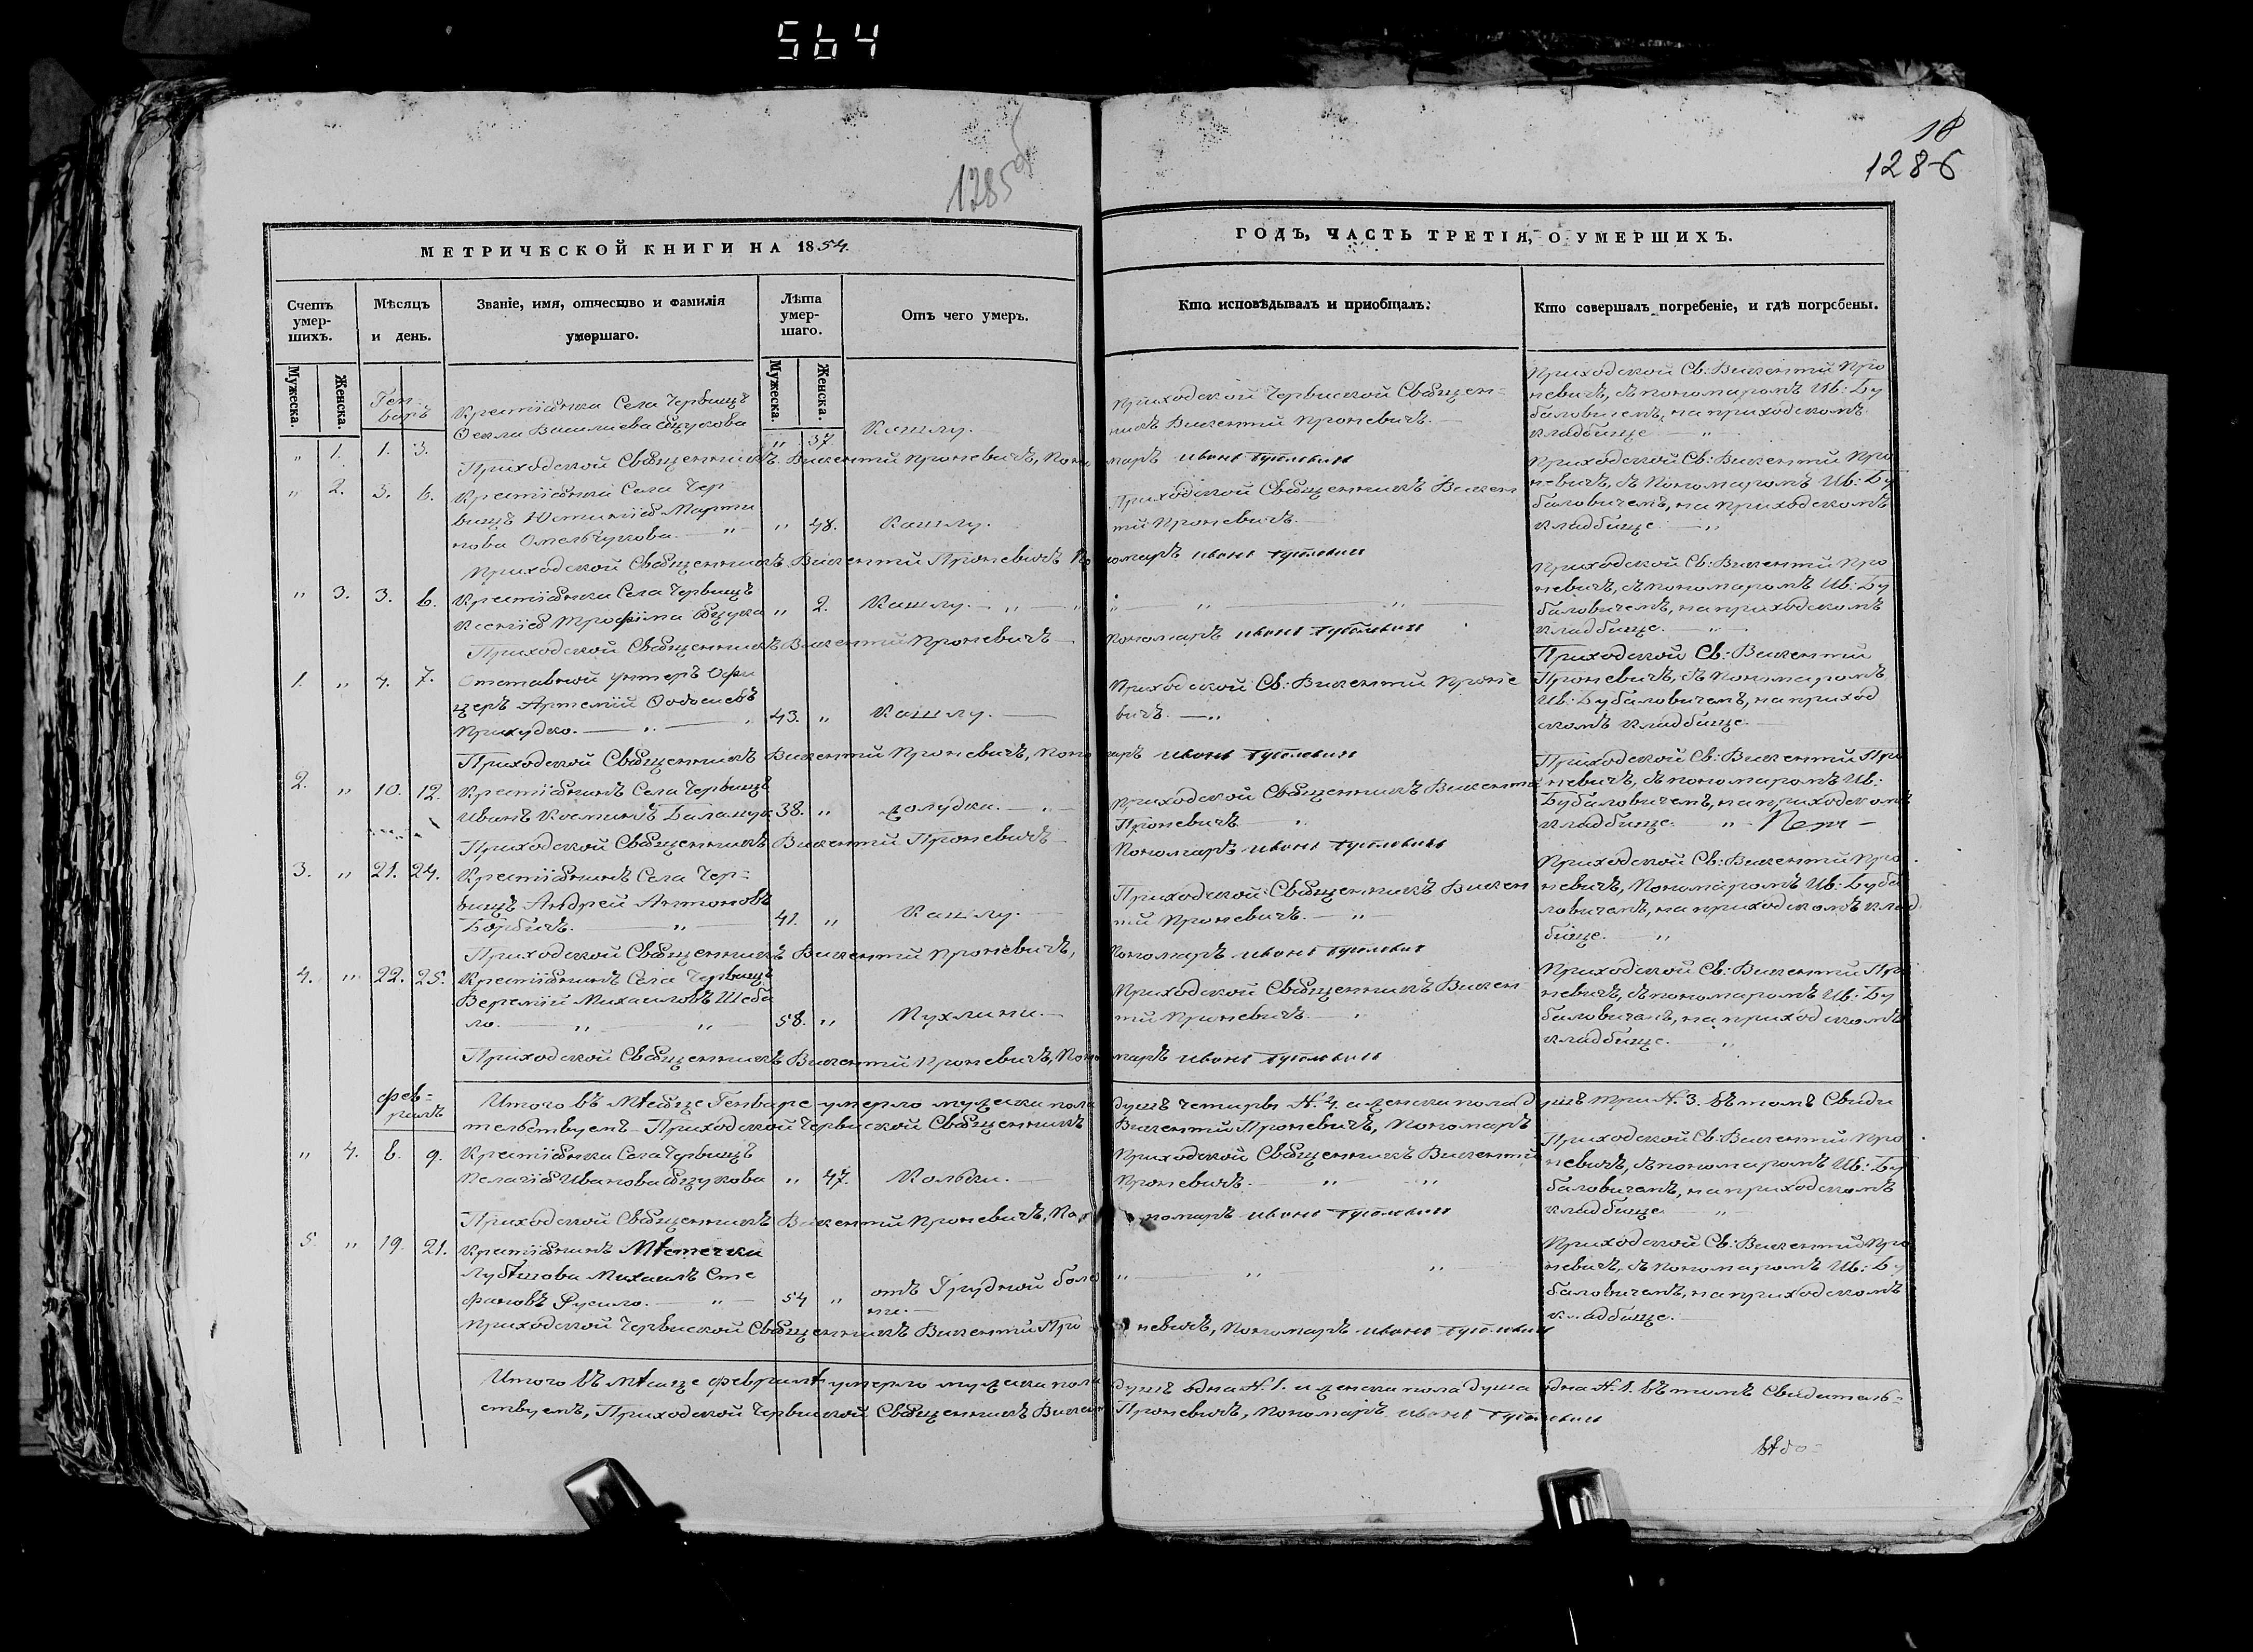 564
1285об
18
1286
МЕТРИЧЕСКОЙ КНИГИ НА 1854.
ГОДЪ, ЧАСТЬ ТРЕТІЯ, О УМЕРШИХЪ.
Счетъ умер-шихъ.
Мѣсяцъ и день.
Званіе, имя, отчество и фамилія умершаго.
Лѣта умер-шаго.
Отъ чего умеръ.
Кто исповѣдывалъ и приобщалъ.
Кто совершалъ погребеніе, и гдѣ погребены.
Мужеска.
Женска.
Мужеска.
Женска.
Ген-
варь
Крестіянка Села Червищъ
Ѳекла Василиева
„ 1. 1. 3.
„ 37. Кашлу.
Приходской Червиской Священ=
никъ Викентій Проневичъ.
Приходской Св: Викентій Про
невичъ, съ пономаромъ Ив: Бу
баловичемъ, на приходскомъ
кладбище „
Приходской Священникъ Викентій Проневичъ, Пономаръ Иванъ
„ 2. 3. 6. Крестіянка Села Чер
вищъ Юстинія Марти
нова Омельчукова. „
„ 48. Кашлу.
Приходской Священникъ Викен
тій Проневичъ.
Приходской Св: Викентій Про
невичъ, съ Пономаромъ Ив: Бу
баловичемъ, на приходскомъ
кладбище. „
Приходской Священникъ Викентій Проневичъ Пономаръ Иванъ
„ 3. 3. 6. Крестіянка Села Червищъ
Ксенія Трофима
„ 2. Кашлу. „ „
„ „ „
Приходской Св: Викентій Про
невичъ, съ пономаромъ Ив: Бу
баловичемъ, на приходскомъ
кладбище. „
Приходской Священникъ Викентій Проневичъ Пономаръ Иванъ
1. „ 4. 7. Отставной унтеръ Офи
церъ Артемій
Прихудко. „
43. „ Кашлу.
Приходской Св: Викентій Проне
вичъ. „
Приходской Св: Викентій
Проневичъ, съ Пономаромъ
Ив: Бубаловичемъ, на приход
скомъ кладбище.
Приходской Священникъ Викентій Проневичъ, Пономаръ Иванъ
2. „ 10. 12. Крестіянинъ Села Червищъ
Иванъ Косминъ
38. „ холудки. „
Приходской Священникъ Викентій
Проневичъ „
Приходской Св: Викентій Про
невичъ, съ пономаромъ Ив:
Бубаловичемъ, на приходскомъ
кладбище. „
Приходской Священникъ Викентій Проневичъ Пономаръ Иванъ
3. „ 21. 24. Крестіянинъ Села Чер=
вищъ Андрей Антоновъ
Борбичъ. „
41. „ Кашлу.
Приходской Священникъ Викен
тій Проневичъ. „
Приходской Св: Викентій Про
невичъ, Пономаромъ Ив: Буба
ловичемъ, на приходскомъ клад
бище. „
Приходской Священникъ Викентій Проневичъ, Пономаръ Иванъ
4. „ 22. 25. Крестіянинъ Села Червищъ
Веремій Михаиловъ Шеба
ло. „ „
58. „ Пухлини.
Приходской Священникъ Викен
тій Проневичъ. „
Приходской Св: Викентій Про
невичъ, съ пономаромъ Ив: Бу
баловичемъ, на приходскомъ
кладбище. „
Приходской Священникъ Викентій Проневичъ, Пономаръ Иванъ
Итого въ Мѣсяце Генваре умерло мужеска пола душъ четиры №. 4. а женска пола душъ три №. 3. въ томъ Свиди
тельствуемъ Приходской Червиской Священникъ Викентій Проневичъ, Пономаръ
Фев=
раль
„ 4. 6. 9. Крестіянка Села Червищъ
Пелагія Иванова
„ 47. Кольки.
Приходской Священникъ Викентій
Проневичъ. „ „
Приходской Св: Викентій Про
невичъ, съ пономаромъ Ив: Бу
баловичемъ, на приходскомъ
кладбище „
Приходской Священникъ Викентій Проневичъ, Пономаръ Иванъ
5. „ 19. 21. Крестіянинъ Мѣстечка
Любѣшова Михаилъ Сте
фановъ Русило. „
54 „ отъ Грудной боле
зне.
„ „ „
Приходской Св: Викентій Про
невичъ, съ пономаромъ Ив: Бу
баловичемъ, на приходскомъ
кладбище.
Приходской Червиской Священникъ Викентій Проневичъ, Пономаръ Иванъ
Итого въ Мѣсяце Февралѣ умерло мужеска пола душъ одна №. 1. и женска пола душа одна №. 1. въ томъ Свидитель=
ствуемъ, Приходской Червиской Священникъ Викентій Проневичъ, Пономаръ Иванъ